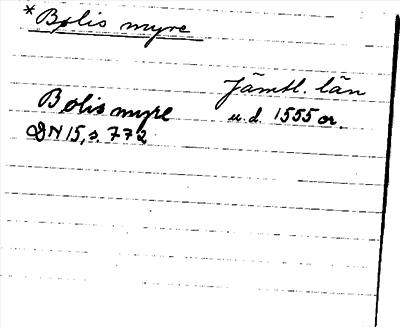 *Bolis myre
Jämtl. län
Bolis myre
u.d. 1555 or.
DN 15, s. 772